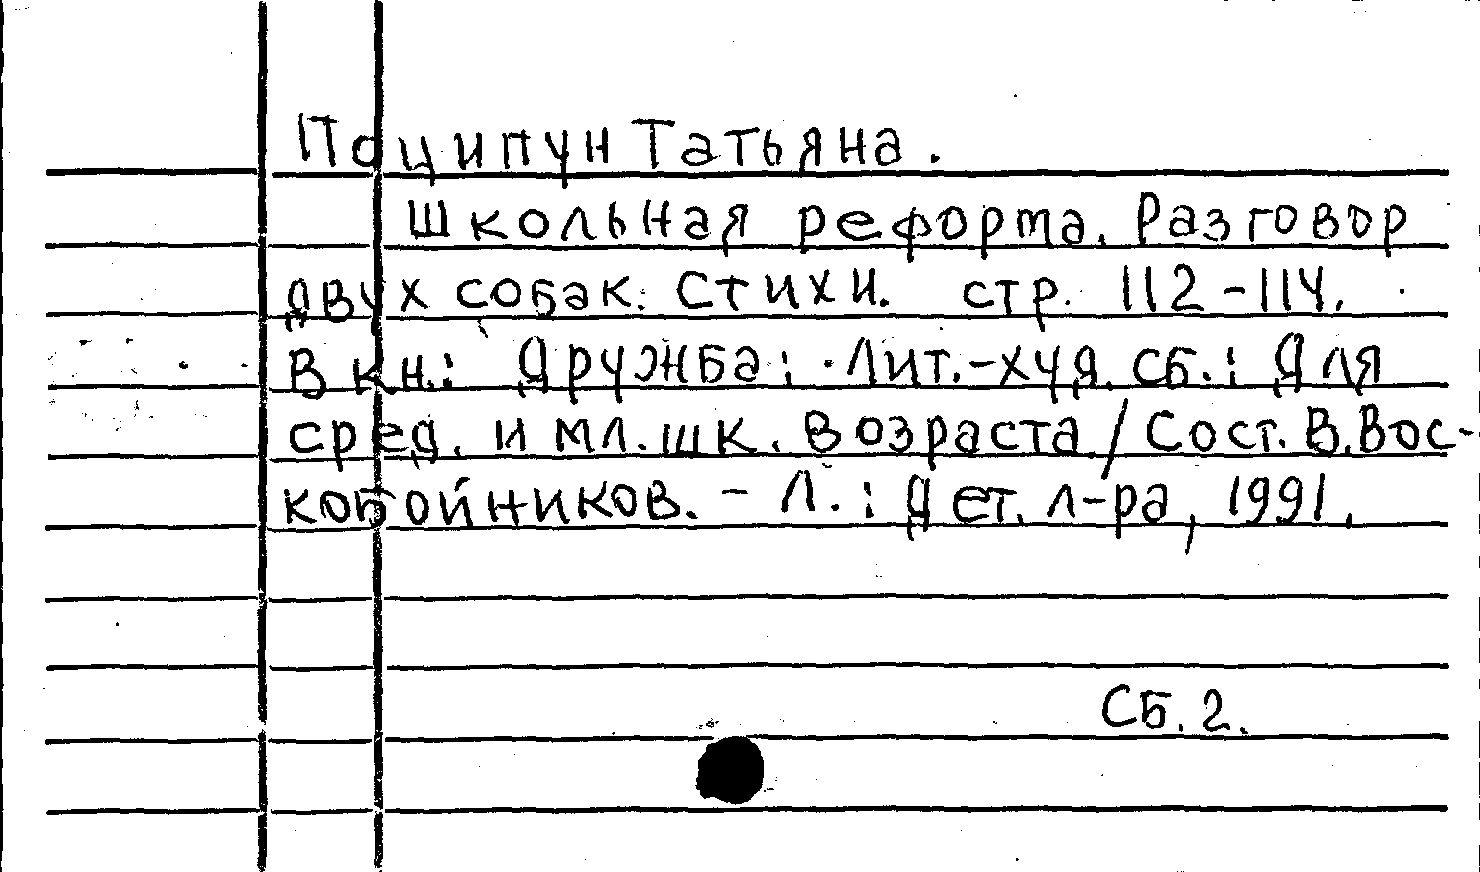 Поципун Татьяна.
Школьная реформа. Разговор
двух собак. Стихи. стр. 112-114.
В кн.: Дружба: Лит.-худ. сб.: Для
сред. и мл. шк. возраста / Сост. В. Вос-
кобойников. - Л.: Дет. л-ра, 1991.
Сб. 2.